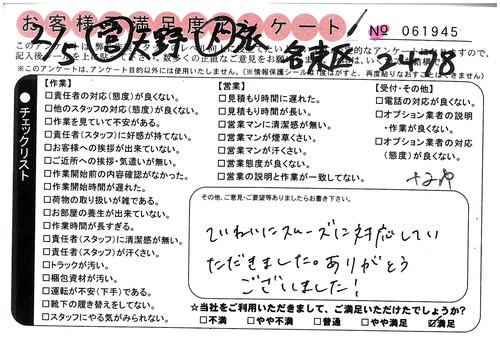 お客様満足度アンケート
№ 061945
2/5 営天野 台東区 2478
※このアンケートは、アンケート目的以外には使用いたしません。(※情報保護シールは1度はがすと、再度貼りなおすことはできません)
チェックリスト
【作業】
□責任者の対応(態度)が良くない。
□他のスタッフの対応(態度)が良くない。
□作業を見ていて不安がある。
□責任者(スタッフ)に好感が持てない。
□お客様への挨拶が出来ていない。
□ご近所への挨拶・気遣いが無い。
□作業開始前の内容確認がなかった。
□作業開始時間が遅れた。
□荷物の取り扱いが雑である。
□お部屋の養生が出来ていない。
□作業時間が長すぎる。
□責任者(スタッフ)に清潔感が無い。
□責任者(スタッフ)が汗くさい。
□トラックが汚い。
□梱包資材が汚い。
□運転が不安(下手)である。
□靴下の履き替えをしてない。
□スタッフにやる気がみられない。
【営業】
□見積もり時間に遅れた。
□見積もり時間が長い。
□営業マンに清潔感が無い。
□営業マンが煙草くさい。
□営業マンが汗くさい。
□営業態度が良くない。
□営業の説明と作業が一致してない。
【受付・その他】
□電話の対応が良くない。
□オプション業者の説明
・作業が良くない。
□オプション業者の対応
(態度)が良くない。
その他、ご意見・ご要望等ありましたらお書き下さい。
ていねいにスムーズに対応してい
ただきました。ありがとう
ございました!
☆当社をご利用いただきまして、ご満足いただけたでしょうか?
□不満 □やや不満 □普通 □やや満足 ☑満足